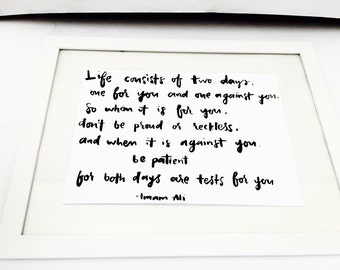 Life consists of two days.
one for you and one against you.
So when it is for you.
don't be proud or reckless.
and when it is against you
be patient
for both days are tests for you
-Imam Ali